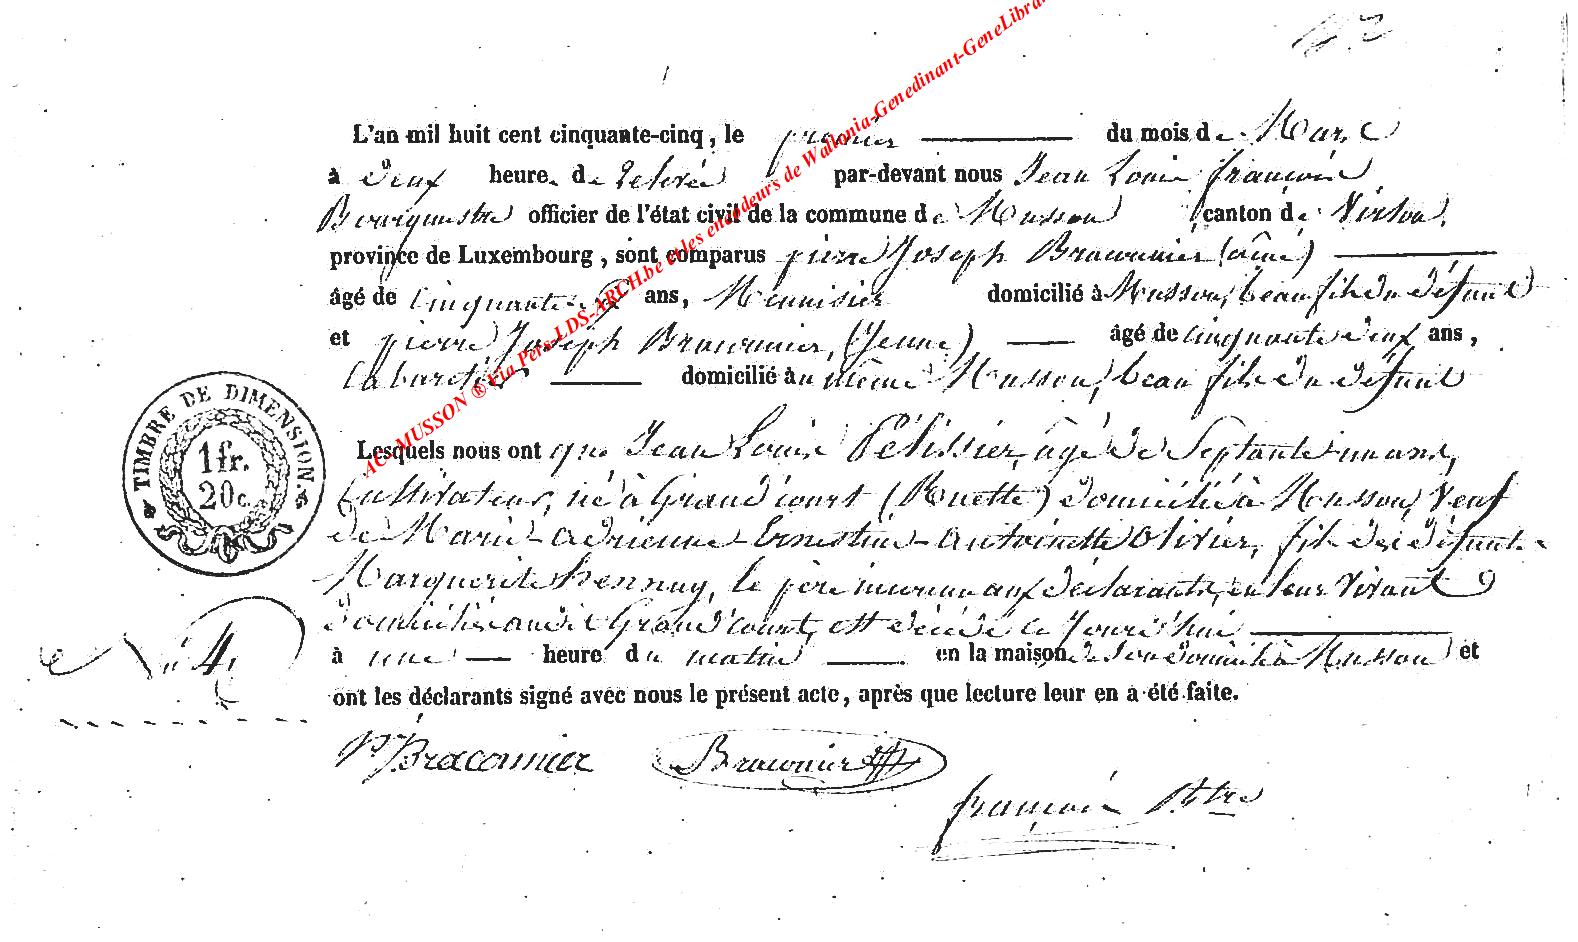 L'an mil huit cent cinquante-cinq, le premier du mois de Mars
à deux heures de relevée par-devant nous Jean Louis françois
Bourgmestre officier de l'état civil de la commune de Musson canton de Virton,
province de Luxembourg, sont comparus pierre Joseph Braconnier (aîné)
âgé de cinquante ans, Menuisier domicilié à Musson, beau fils du défunt
et pierre Joseph Braconnier, (Jeune) âgé de cinquante deux ans,
Cabaretier, domicilié à même Musson, beau fils du défunt
Lesquels nous ont que Jean Louis Pélissier, âgé de Septante un ans,
Cultivateur, né à Grand'court (Ruette) domicilié à Musson, Veuf
de Marie-Adrienne-Ernestine-Antoinette Olivier, fils des défunts
Marguerite hennuy, le père inconnu aux déclarants, en leur vivant
domiciliés audit Grand'court, est décédé ce Jourd'hui
à une heure du matin en la maison de son domicile à Musson et
ont les déclarants signé avec nous le présent acte, après que lecture leur en a été faite.
TIMBRE DE DIMENSION.
1 fr.
20 c.
N° 4
P. J. Braconnier Braconnier
françois
AC-MUSSON ® Via Pers-LDS-ARCH.be et les encodeurs de Wallonia-Genedinant-GeneLibra